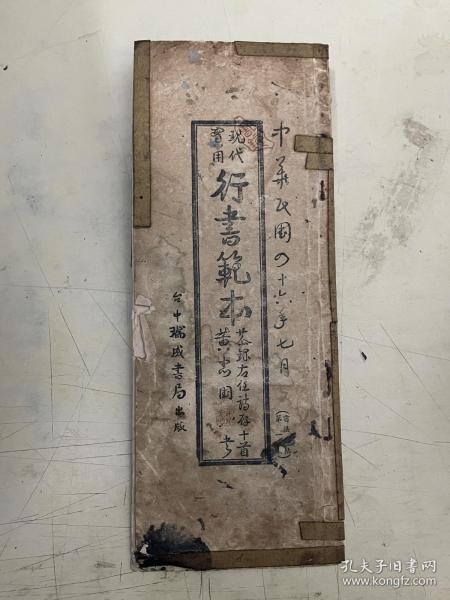 中華民國四十六年七月
現代
實用
行書範本
恭錄右任詩存十首
台中瑞成書局出版
孔夫子旧书网
www.kongfz.com